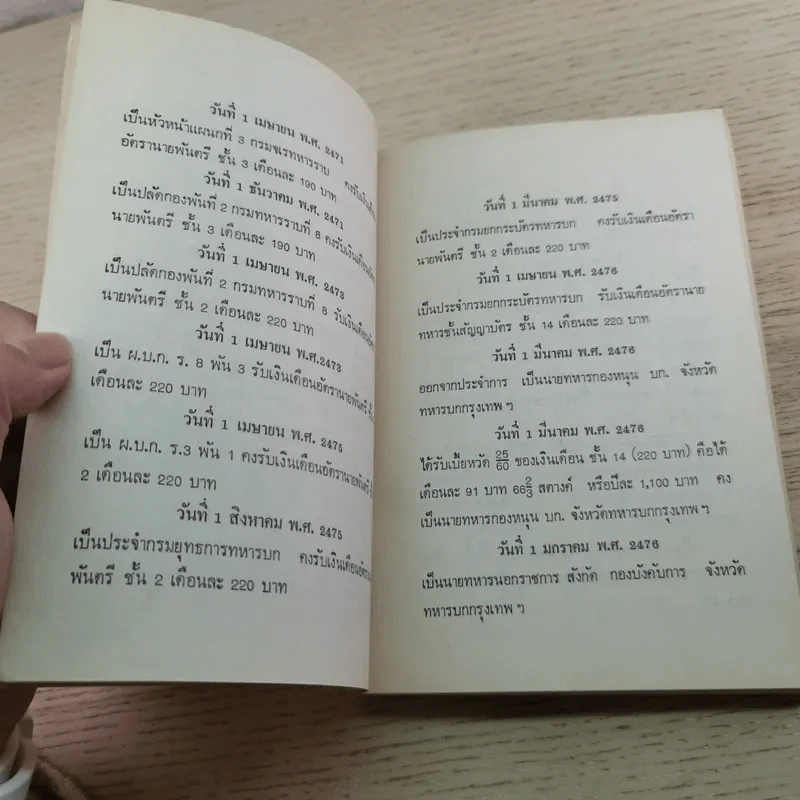 วันที่ 1 เมษายน พ.ศ. 2471
เป็นหัวหน้าแผนกที่ 3 กรมจเรทหารราบ คงรับเงินเดือน
อัตรานายพันตรี ชั้น 3 เดือนละ 190 บาท
วันที่ 1 ธันวาคม พ.ศ. 2471
เป็นปลัดกองพันที่ 2 กรมทหารราบที่ 8 คงรับเงินเดือน
นายพันตรี ชั้น 3 เดือนละ 190 บาท
วันที่ 1 เมษายน พ.ศ. 2473
เป็นปลัดกองพันที่ 2 กรมทหารราบที่ 8 รับเงินเดือน
นายพันตรี ชั้น 2 เดือนละ 220 บาท
วันที่ 1 เมษายน พ.ศ.2473
เป็น ผ.บ.ก. ร. 8 พัน 3 รับเงินเดือนอัตรานายพันตรี
เดือนละ 220 บาท
วันที่ 1 เมษายน พ.ศ. 2475
เป็น ผ.บ.ก. ร.3 พัน 1 คงรับเงินเดือนอัตรานายพันตรี
2 เดือนละ 220 บาท
วันที่ 1 สิงหาคม พ.ศ. 2475
เป็นประจำกรมยุทธการทหารบก คงรับเงินเดือนอัตรา
พันตรี ชั้น 2 เดือนละ 220 บาท
วันที่ 1 มีนาคม พ.ศ. 2475
เป็นประจำกรมยกกระบัตรทหารบก คงรับเงินเดือนอัตรา
นายพันตรี ชั้น 2 เดือนละ 220 บาท
วันที่ 1 เมษายน พ.ศ. 2476
เป็นประจำกรมยกกระบัตรทหารบก รับเงินเดือนอัตรานาย
ทหารชั้นสัญญาบัตร ชั้น 14 เดือนละ 220 บาท
วันที่ 1 มีนาคม พ.ศ. 2476
ออกจากประจำการ เป็นนายทหารกองหนุน บก. จังหวัด
ทหารบกกรุงเทพ ฯ
วันที่ 1 มีนาคม พ.ศ. 2476
ได้รับเบี้ยหวัด 25/60 ของเงินเดือน ชั้น 14 (220 บาท) คือได้
เดือนละ 91 บาท 66 2/3 สตางค์ หรือปีละ 1,100 บาท คง
เป็นนายทหารกองหนุน บก. จังหวัดทหารบกกรุงเทพ ฯ
วันที่ 1 มกราคม พ.ศ. 2476
เป็นนายทหารนอกราชการ สังกัด กองบังคับการ จังหวัด
ทหารบกกรุงเทพ ฯ